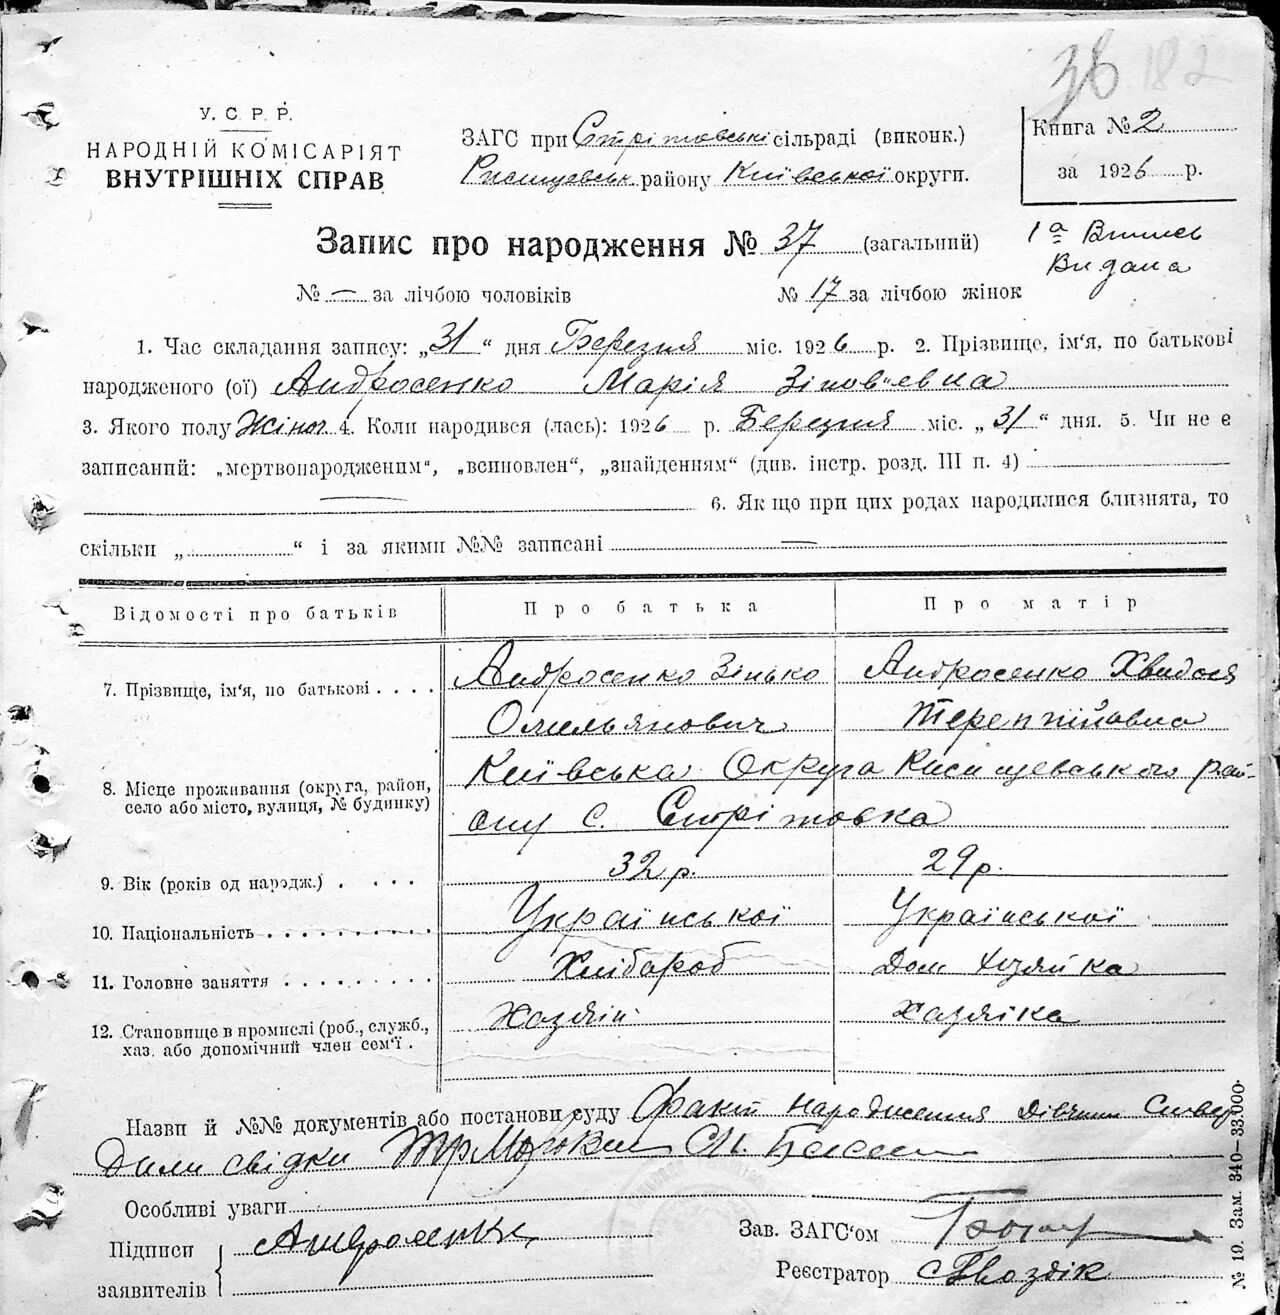 36 182
У. С. Р. Р.
НАРОДНІЙ КОМІСАРІЯТ
ВНУТРІШНІХ СПРАВ
ЗАГС при Стрітовські сільраді (виконк.)
Ржищевськ району Київської округи.
Книга № 2
за 1926 р.
Запис про народження № 37 (загальний)
1а Випись
Видана
№ — за лічбою чоловіків
№ 17 за лічбою жінок
1. Час складання запису: „31“ дня Березня міс. 1926 р. 2. Прізвище, ім‘я, по батькові
народженого (ої) Андросенко Марія Зінов"євна
3. Якого полу Жіноч 4. Коли народився (лась): 1926 р. Березня міс. „31“ дня. 5. Чи не є
записаний: „мертвонародженим“, „всиновлен“, „знайденням“ (див. інстр. розд. III п. 4)
— 6. Як що при цих родах народилися близнята, то
скільки „ “ і за якими №№ записані —
Відомості про батьків
Про батька
Про матір
7. Прізвище, ім‘я, по батькові . . . .
Андросенко Зінько
Омельянович
Андросенко Хвидося
Терентійовна
8. Місце проживання (округа, район,
село або місто, вулиця, № будинку)
Київська Округа Ржищевського рай-
ону с. Стрітовка
9. Вік (років од народж.) . . . .
32 р.
29 р.
10. Національність . . . . . . . . . .
Української
Української
11. Головне заняття . . . . . . . . .
Хлібароб
Дом Хозяйка
12. Становище в промислі (роб., служб.,
хаз. або допомічний член сем‘ї .
Хозяїн
Хазяїка
Назви й №№ документів або постанови суду Факт народження дівчини Ствер
дили свідки
Особливі уваги
Підписи
заявителів
Андросенко
Зав. ЗАГС‘ом
Реєстратор Гвоздік
№ 19. Зам. 340—33.000.